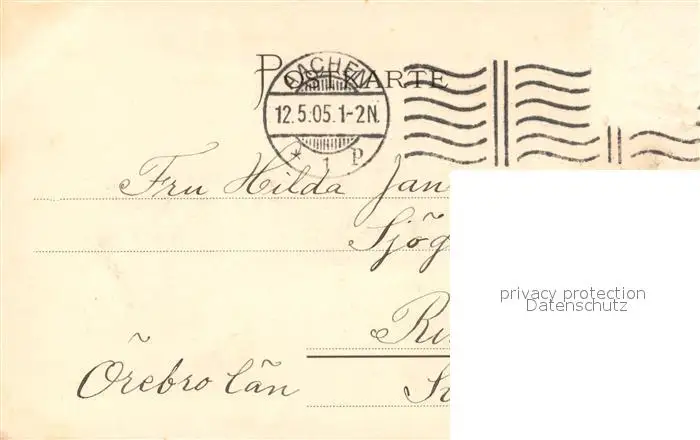 POSTKARTE
AACHEN
12.5.05.1-2N.
* 1 P
Fru Hilda Jan
Sjög
Örebro län
privacy protection
Datenschutz